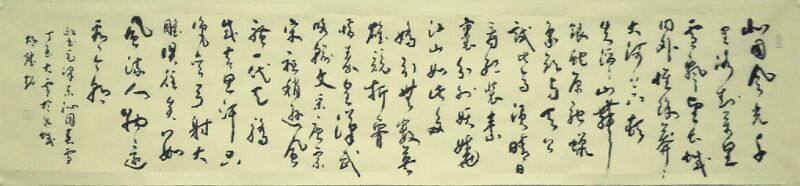 北国风光千
里冰封万里
雪飘望长城
内外惟余莽莽
大河上下顿
失滔滔山舞
银蛇原驰蜡
象欲与天公
试比高须晴日
看红装素
裹分外妖娆
江山如此多
娇引无数英
雄竞折腰
惜秦皇汉武
略输文采唐宗
宋祖稍逊风
骚一代天骄
成吉思汗只
识弯弓射大
雕俱往矣数
风流人物还
看今朝
毛泽东沁园春雪